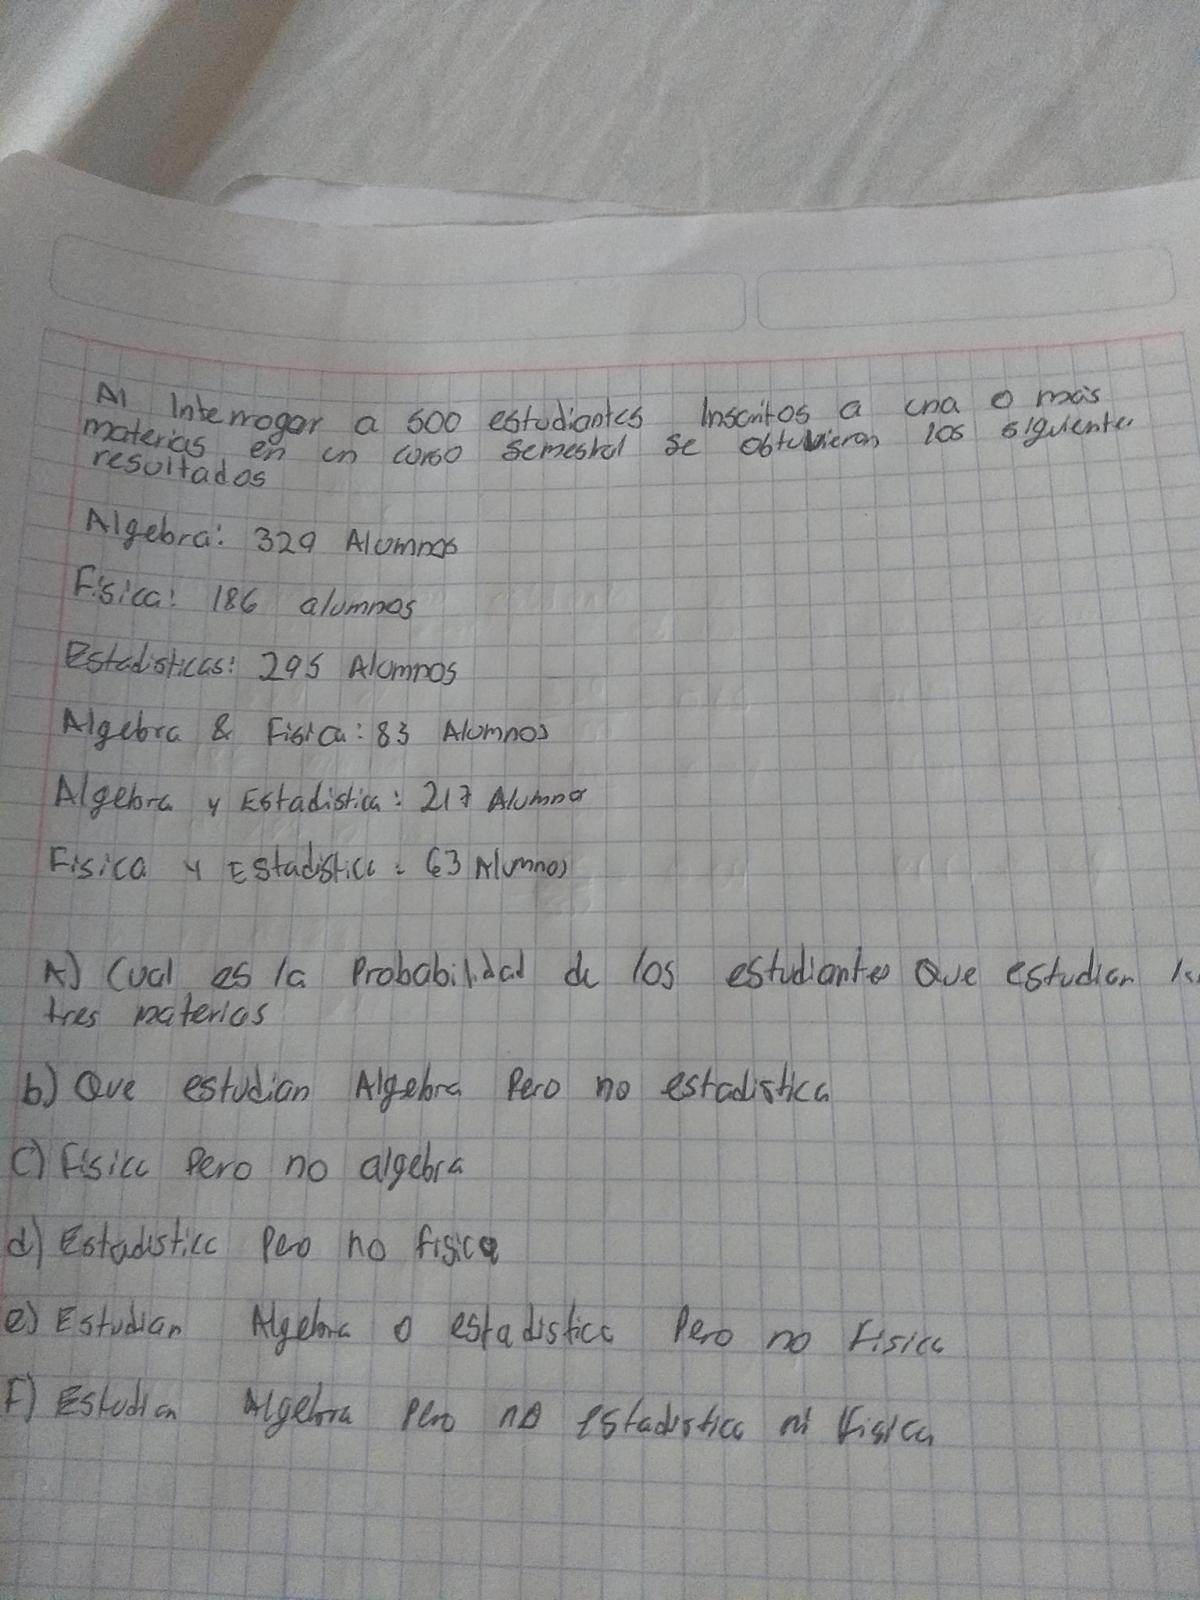 Al Interrogar a 500 estudiantes Inscritos a una o más
materias en un curso semestral se obtubieron los siguiente
resultados
Algebra: 329 Alumnos
Fisica: 186 alumnos
Estadisticas: 295 Alumnos
Algebra & Fisica: 83 Alumnos
Algebra y Estadistica: 217 Alumno
Fisica y Estadistica: 63 Alumnos
A) Cual es la Probabilidad de los estudiantes Que estudian
tres materias
b) Que estudian Algebra Pero no estadistica
C) Fisica Pero no algebra
d) Estadistica Pero no fisica
e) Estudian Algebra o estadistica Pero no Fisica
F) Estudian Algebra Pero no estadistica ni Fisica